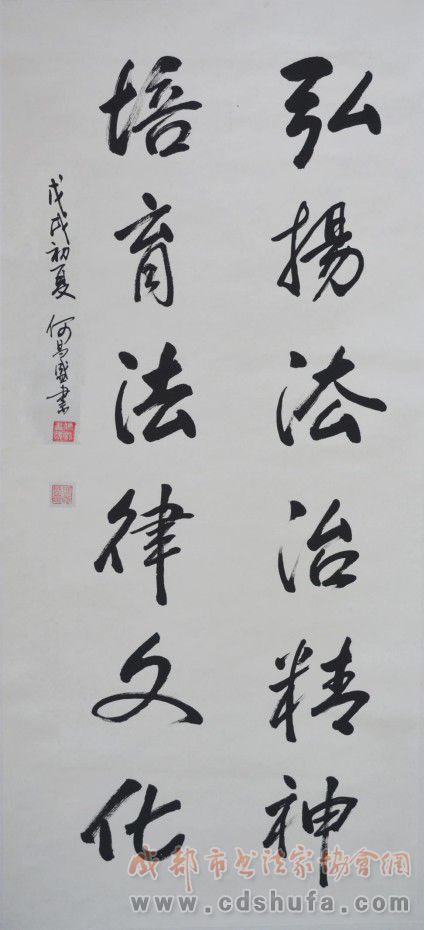 弘揚法治精神
培育法律文化
戊戌初夏 何昌盛書
成都市书法家協會網
www.cdshufa.com